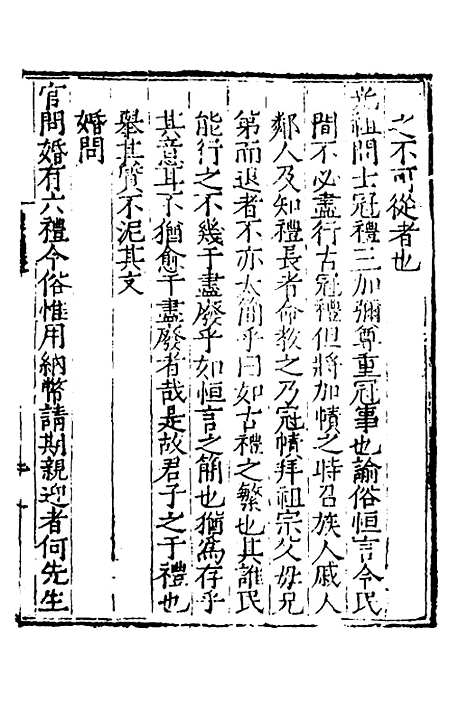 之不可從者也
光祖問士冠禮三加彌尊重冠事也諭俗恒言令民
間不必盡行古冠禮但將加幘之時召族人戚人
鄰人及知禮長者命教之乃冠幘拜祖宗父母兄
第而退者不亦太簡乎曰如古禮之繁也其誰民
能行之不幾于盡廢乎如恒言之簡也猶為存乎
其意耳不猶愈于盡廢者哉是故君子之于禮也
舉其質不泥其文
婚問
官問婚有六禮今俗惟用納幣請期親迎者何先生